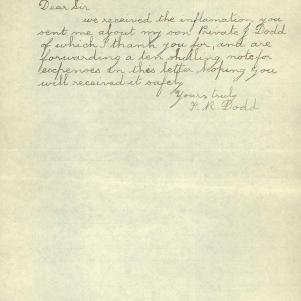 Dear Sir
we received the inflamation you
sent me about my son Private J Dodd
of which I thank you for, and are
forwarding a ten shilling note for
expences in this letter hoping you
will received it safely
Yours truly
F. R. Dodd